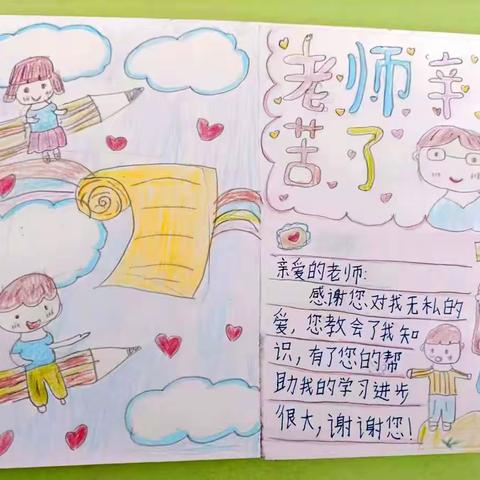 老师辛
苦了
亲爱的老师:
感谢您对我无私的
爱,您教会了我知
识,有了您的帮
助我的学习进步
很大,谢谢您!